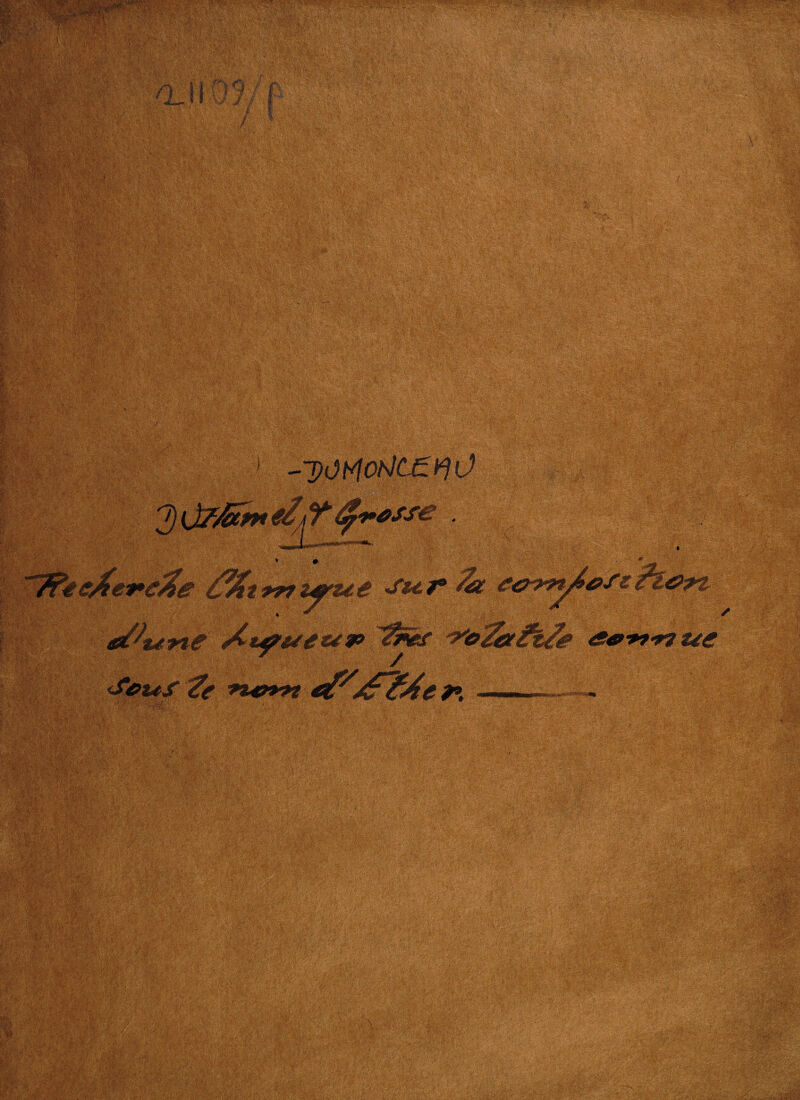 21109/p
-DUMONCEAU
Duhamel, & Grosse .
Recherche Chimique sur la composition
d'une Liqueur très volatile connue
Sous le nom d'Éther.